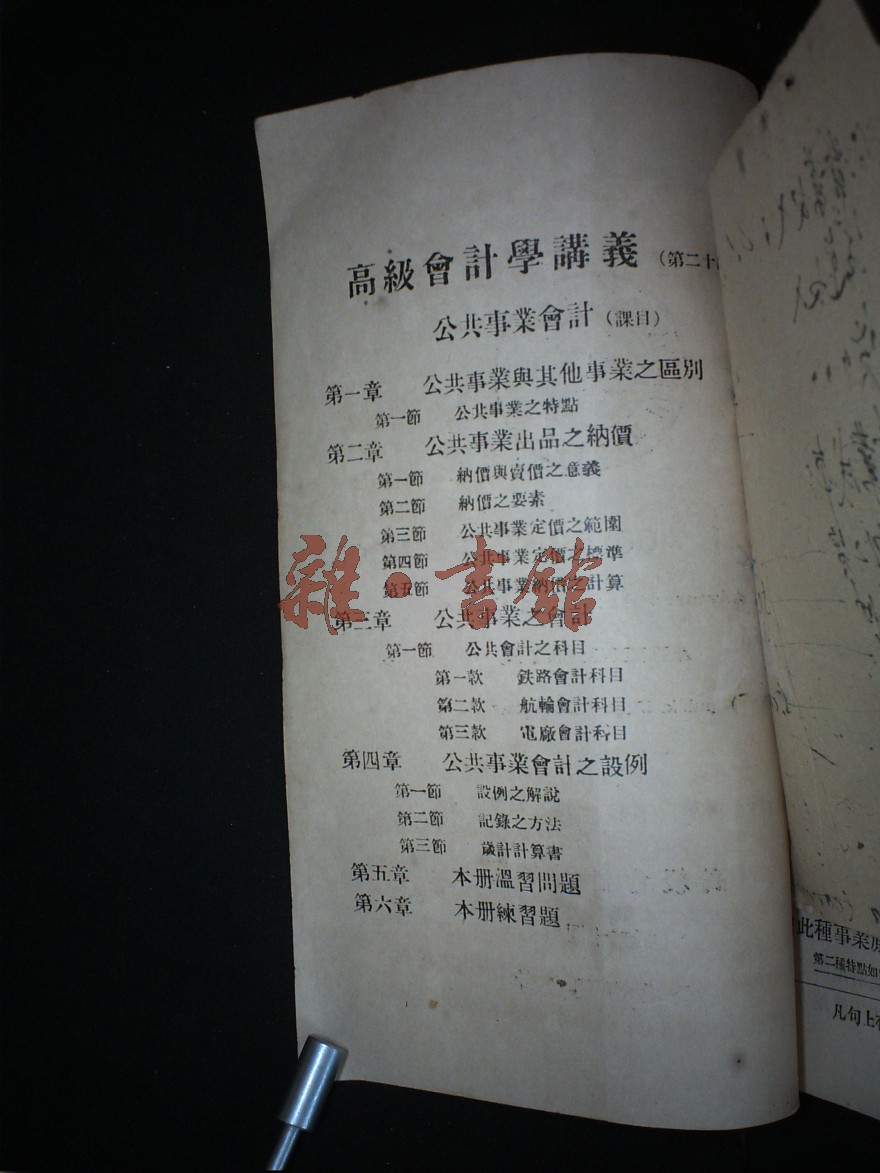 高級會計學講義 (第二十
公共事業會計 (課目)
第一章 公共事業與其他事業之區別
第一節 公共事業之特點
第二章 公共事業出品之納價
第一節 納價與賣價之意義
第二節 納價之要素
第三節 公共事業定價之範圍
第四節 公共事業定價之標準
第五節 公共事業納價之計算
第三章 公共事業之會計
第一節 公共會計之科目
第一款 鉄路會計科目
第二款 航輪會計科目
第三款 電廠會計科目
第四章 公共事業會計之設例
第一節 設例之解說
第二節 記錄之方法
第三節 歲計計算書
第五章 本册溫習問題
第六章 本册練習題
雜·書館
此種事業
第二種特點如
凡句上